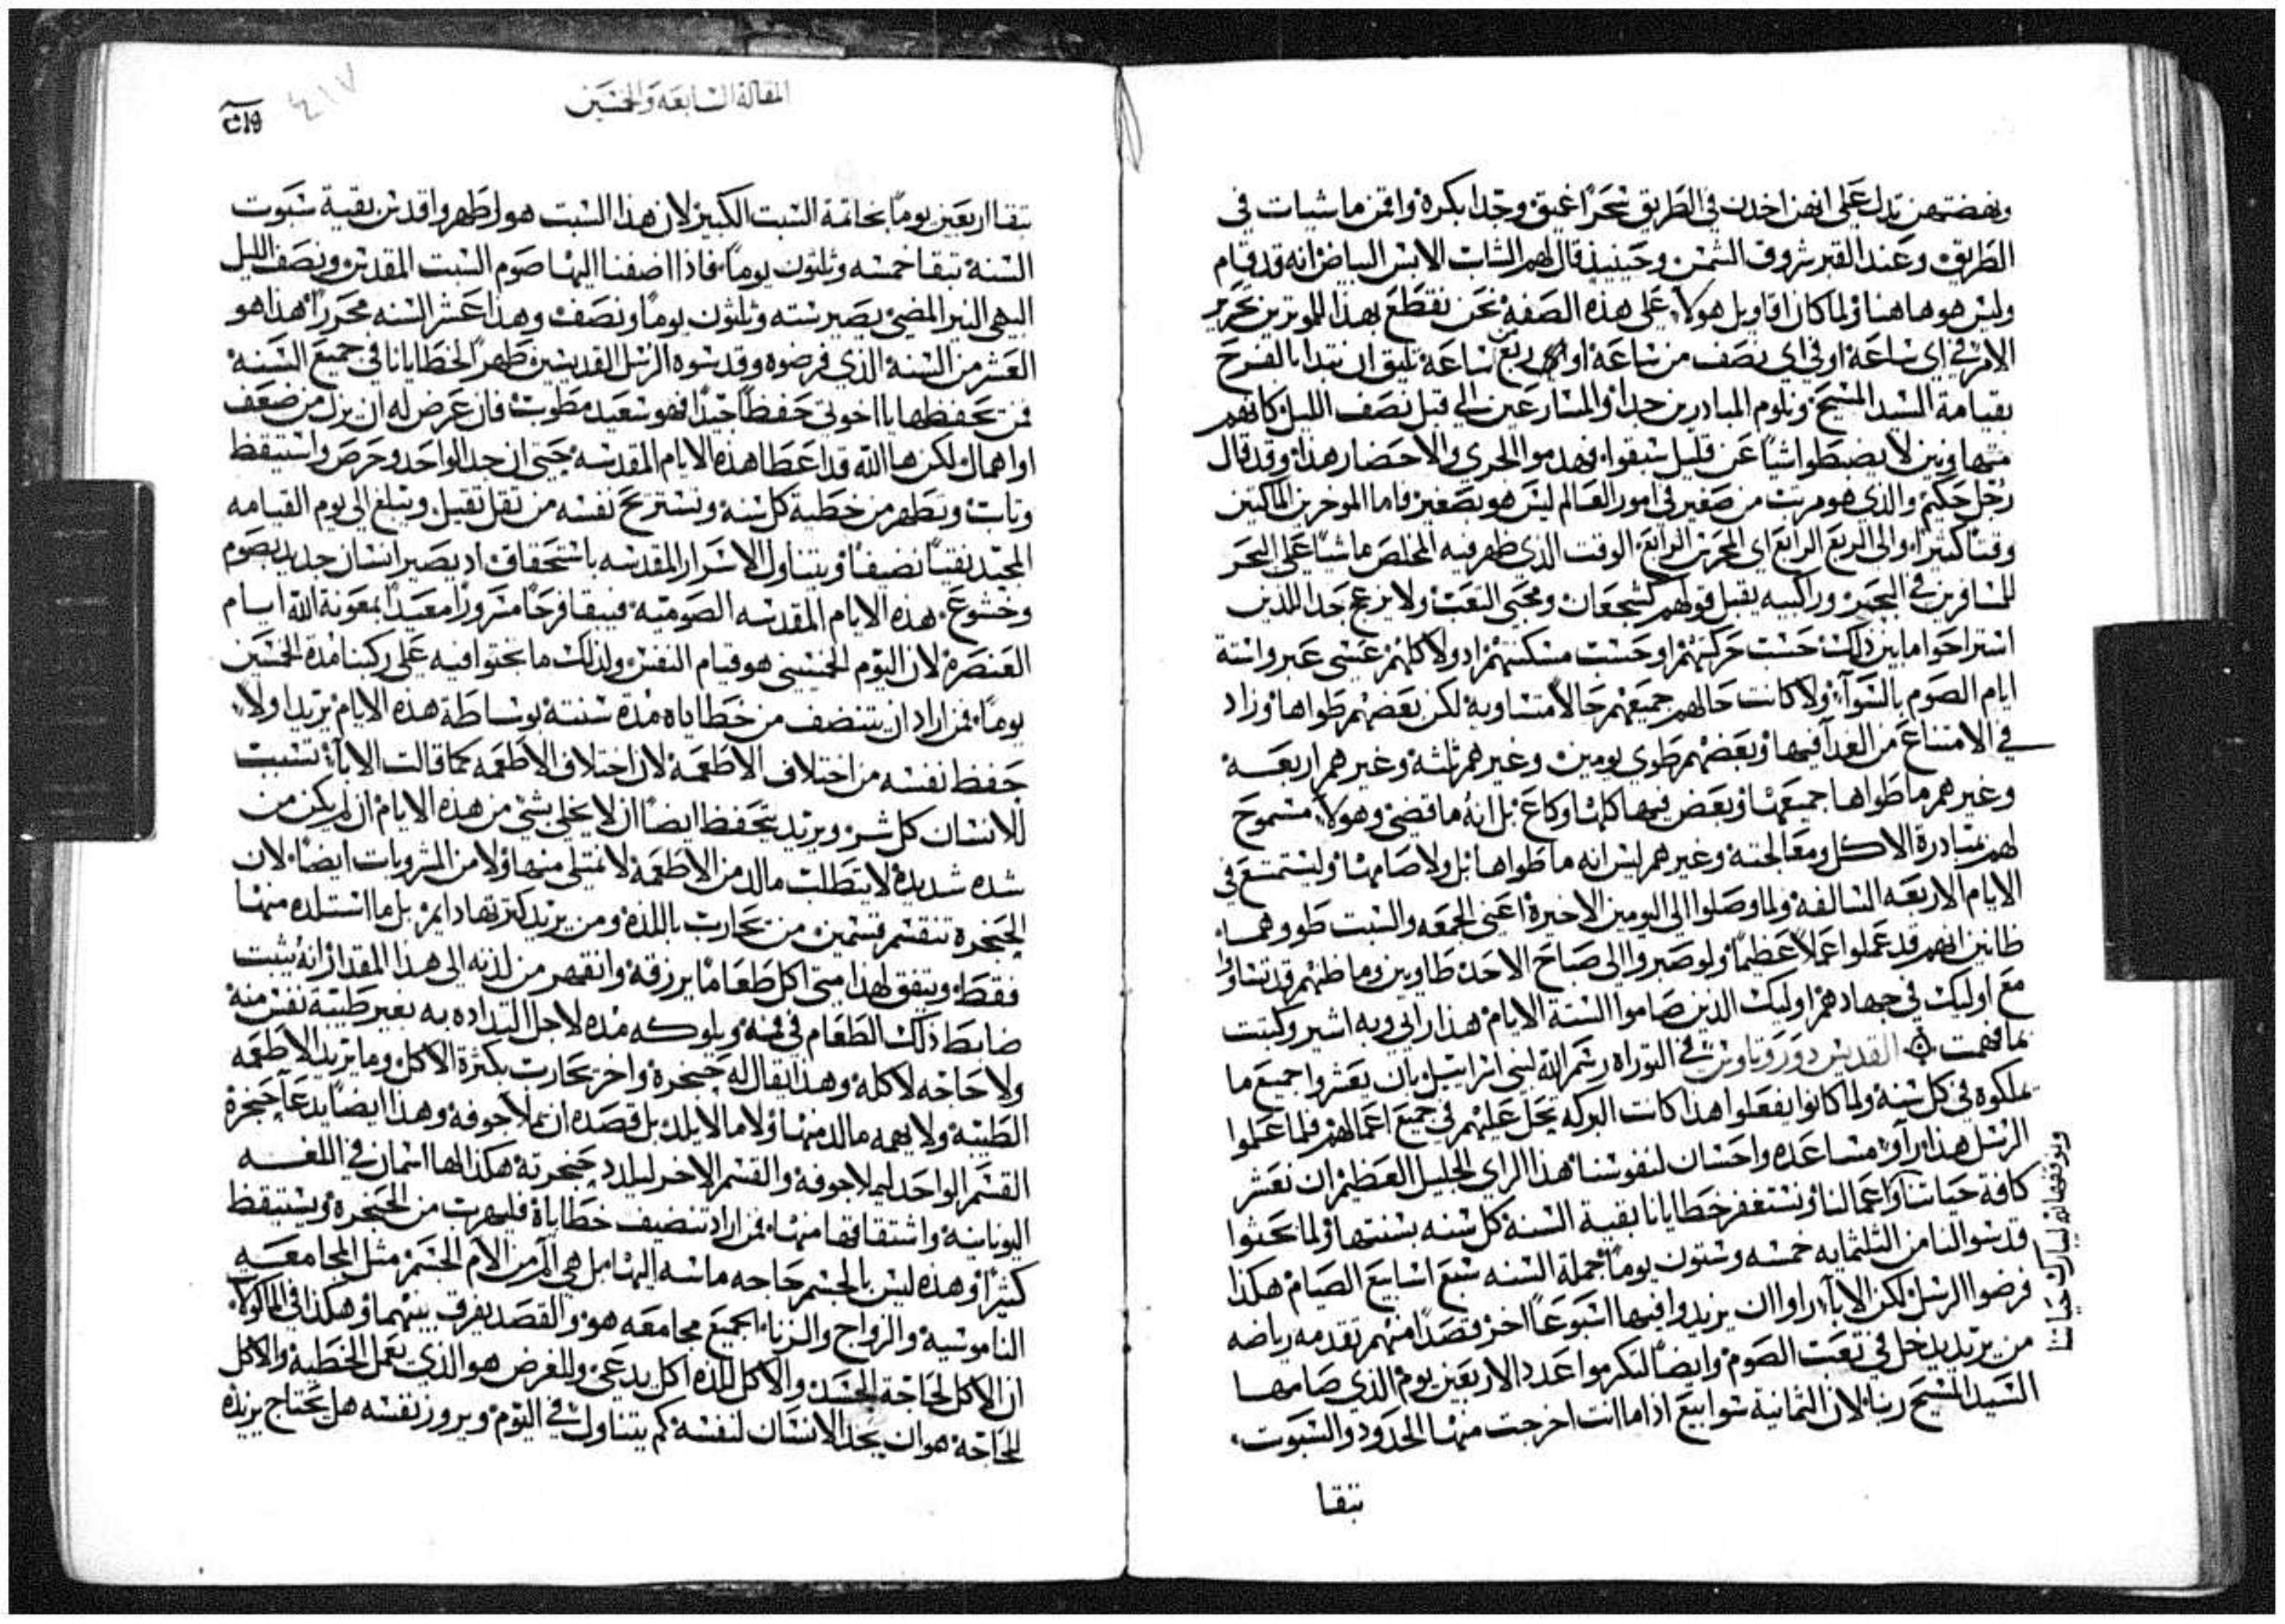 ونهضتهن تدل على انهن اخدن في الطريق سحرًا غميق وجدا بكرة وافمن ماشيات في
الطريق وعند القبر شروق الشمس وحينيذ قال لهم الشاب الابس البياض انه قد قام
وليس هو هاهنا ولما كان اقاويل هولآ على هذه الصفة نحن نقطع بهذا للموترين تحرير
الامر في اي ساعة او في اي نصف من ساعة او ربع ساعة تليق ان نبتدا بالفرح
بقيامة السيد المسيح ونلوم المبادرين جدا والمسارعين الي قبل نصف الليل كانهم
متهاونين لا يضبطوا شيًا عن قليل سبقوا فهدموا الجري والاحضار هذا وقد قال
رجل حكيم والذي هو مرتب من صغير في امور العالم ليس هو بصغير فاما الموخرين الماكتين
وقتًا كثيرًا والى الربع الرابع اي المحرس الرابع الوقت الذي ظهر فيه المخلص ماشيًا على البحر
للمسافرين في البحر وراكبيه يقبل قولهم كشجعان ومحبي التعب ولا يزعج جدا للذين
استراحوا ما بين ذلك حسب حركتهم او حسب مسكنتهم اد ولا كلهم عسى عبروا ستة
ايام الصوم بالسوآ ولا كانت حالهم جميعهم حالًا متساوية لكن بعضهم طواها وزاد
في الامتناع من الغدآ فيها وبعضهم طوي يومين وغيرهم ثلثة وغيرهم اربعة
وغيرهم ما طواها جميعها وبعض فيها كلها وكاع بل انه ما قضى وهولآ مسموح
لهم بمبادرة الاكل ومعالجته وغيرهم ليس انه ما طواها بل ولا صامها وليستمتع في
الايام الاربعه السالفه ولما وصلوا الى اليومين الاخيرة اعني الجمعه والسبت طووهما
ظانين انهم قد عملوا عملًا عظيمًا ولو صبروا الى صباح الاحد طاوين وما ظنهم قد تساوا
مع اوليك في جهادهم اوليك الذين صاموا الستة الايام هذا رايي وبه اشير وكتبت
بما فهمت القديس دوروتاوس في التوراه رسم الله لبني اسراييل بان يعشروا جميع ما
تملكوه في كل سنه ولما كانوا يفعلوا هذا كانت البركه تحل عليهم في جميع اعمالهم فلما عملوا
الرسل هذا راو مساعده واحسان لنفوسنا هذا الراي الجليل العظيم ان نعشر
كافة حياتنا واعمالنا ونستغفر خطايانا بقية السنة كل سنه بسنتها ولما بحثوا
قدسوا لنا من الثلثمايه خمسه وستون يومًا جملة السنه سبع اسابيع الصيام هكذا
فرضوا الرسل لكن الابآ راوا ان يزيدوا فيها اسبوعًا اخر قصدًا منهم تقدمه رياضه
من يريد يدخل في تعب الصوم وايضًا لنكرموا عدد الاربعين يوم الذي صامها
السيد المسيح ربنا لان الثمانية سوابيع اداما انت اخرجت منها الحدود والسبوت
تبقا
المقالة السابعه والخمسين
٤١٧
تبقا اربعين يومًا بخاتمة السبت الكبير لان هذا السبت هو اطهر واقدس بقية سبوت
السنة تبقا خمسه وثلثون يومًا فاذا اضفنا اليها صوم السبت المقدس ونصف الليل
البهي النير المضي يصير سته وثلثون يومًا ونصف وهذا عشر السنه محررًا هذا هو
العشر من السنة الذي فرضوه وقدسوه الرسل القديسين طهرًا لخطايانا في جميع السنة
فمن يحفظها يا اخوتي حفظًا جيدًا فهو سعيد مطوب فان عرض له ان يزل من ضعف
او اهمال لكن ها الله قد اعطا هذه الايام المقدسه حتى ان جد الواحد وحرص واستيقظ
وتاب وتطهر من خطية كل سنه وتستريح نفسه من ثقل ثقيل ويبلغ الى يوم القيامه
المجيد نقيًا نضيفًا ويتناول الاسرار المقدسه باستحقاق اد يصير انسان جديد بصوم
وخشوع هذه الايام المقدسه الصوميه فيبقا فرحًا مسرورًا معيدًا بمعونة الله ايام
العنصرة لان اليوم الخمسيني هو قيام النفس ولذلك ما نجتوا فيه على ركبنا مدة الخمسين
يومًا فمن اراد ان يتنضف من خطاياه مدة سنتة بوساطة هذه الايام يريد اولًا
حفظ نفسه من اختلاف الاطعمة لان اختلاف الاطعمه كما قالت الابآ تسبب
للانسان كل شر ويريد يتحفظ ايضًا ان لا يخلي بشي من هذه الايام ان لم يكن من
شده شديدة لا يتطلب مالد من الاطعمة لا نمتلي منها ولا من المشروبات ايضًا لان
الحنجرة تنقسم قسمين من تحارب باللذة ومن يريد كثرتها دايمًا بل ما استلده منها
فقط ويتفق لهذا متى اكل طعامًا يرزقه وانقهر من لذته الى هذا المقدار انه يثبت
ضابط ذلك الطعام في فمه ويلوكه مده لاجل التداده به بغير طيبة نفس منه
ولا حاجه لاكله وهذا يقال له حنجرة واخر تحارب بكثرة الاكل وما يريد الاطعمه
الطيبة ولا يهمه مالد منها ولا ما لا يلد بل قصده ان يملا جوفه وهذا ايضًا يدعآ حنجرة
القسم الواحد ليملا جوفه والقسم الاخر ليلدد حنجرته هكذا لها اسمان في اللغه
اليونانيه واشتقاقها منها فمن اراد تنضيف خطاياه فليهرب من الحنجرة ويستيقظ
كثيرًا وهذه ليس بالجسم حاجه ماسه اليها بل هي الم من الام الجسم مثل المجامعه
الناموسية والزواج والزناء الجميع مجامعه هو والقصد يفرق بينهما وهكذا في الماكولا
ان الاكل لحاجة الجسد والاكل للذه اكل يدعى وللغرض هو الذي يعمل الخطية والاكل
للحاجة هو ان يحد الانسان لنفسه كم يتناول في اليوم ويروز نفسه هل يحتاج يزيده